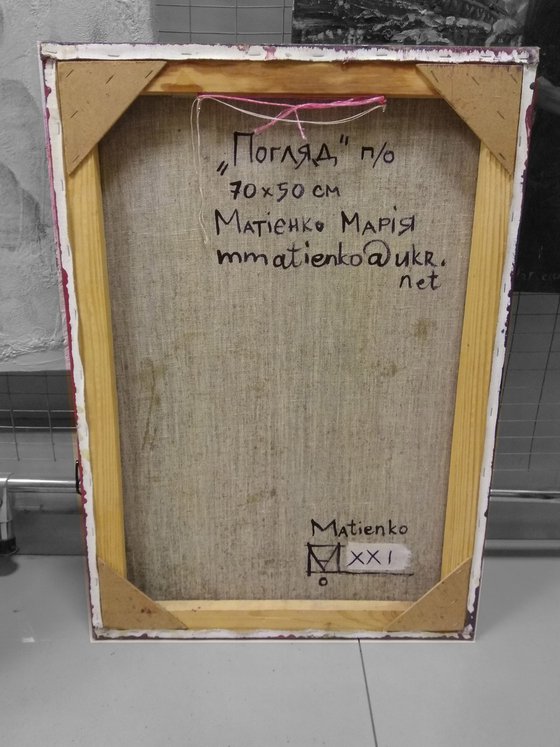 „Погляд" п/о
70x50 см
Матієнко Марія
mmatienko@ukr.
net
Matienko
XXI